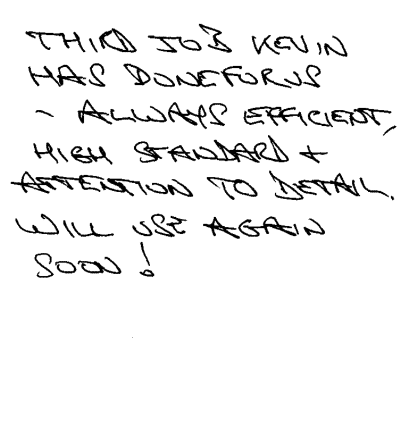 THIRD JOB KEVIN
HAS DONE FOR US
- ALWAYS EFFICIENT,
HIGH STANDARD +
ATTENTION TO DETAIL.
WILL USE AGAIN
SOON!